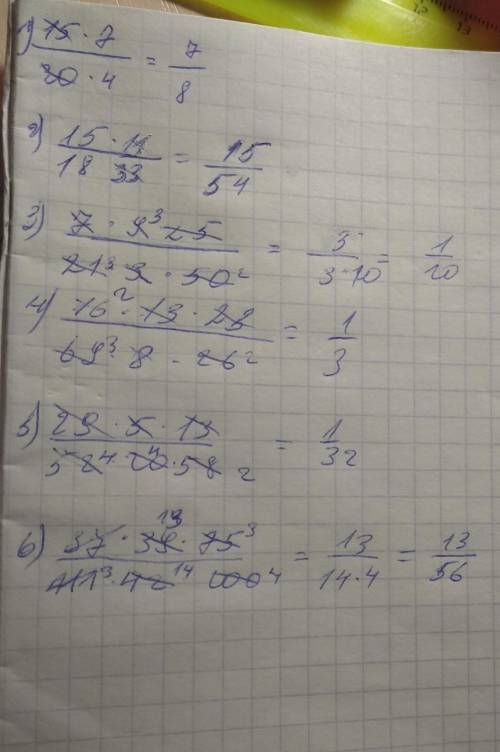 1) 15 · 7 / 20 · 4 = 7 / 8
2) 15 · 11 / 18 33 = 15 / 54
3) 7 · 9³ 25 / 21³ 9 · 50² = 3 / 3·10 = 1 / 10
4) 16² · 13 · 23 / 69³ · 8 · 26² = 1 / 3
5) 29 · 5 · 13 / 52⁴ · 20⁴ · 58 2 = 1 / 32
6) 37 · 39 13 · 75³ / 111³ · 42¹⁴ · 100 4 = 13 / 14·4 = 13 / 56